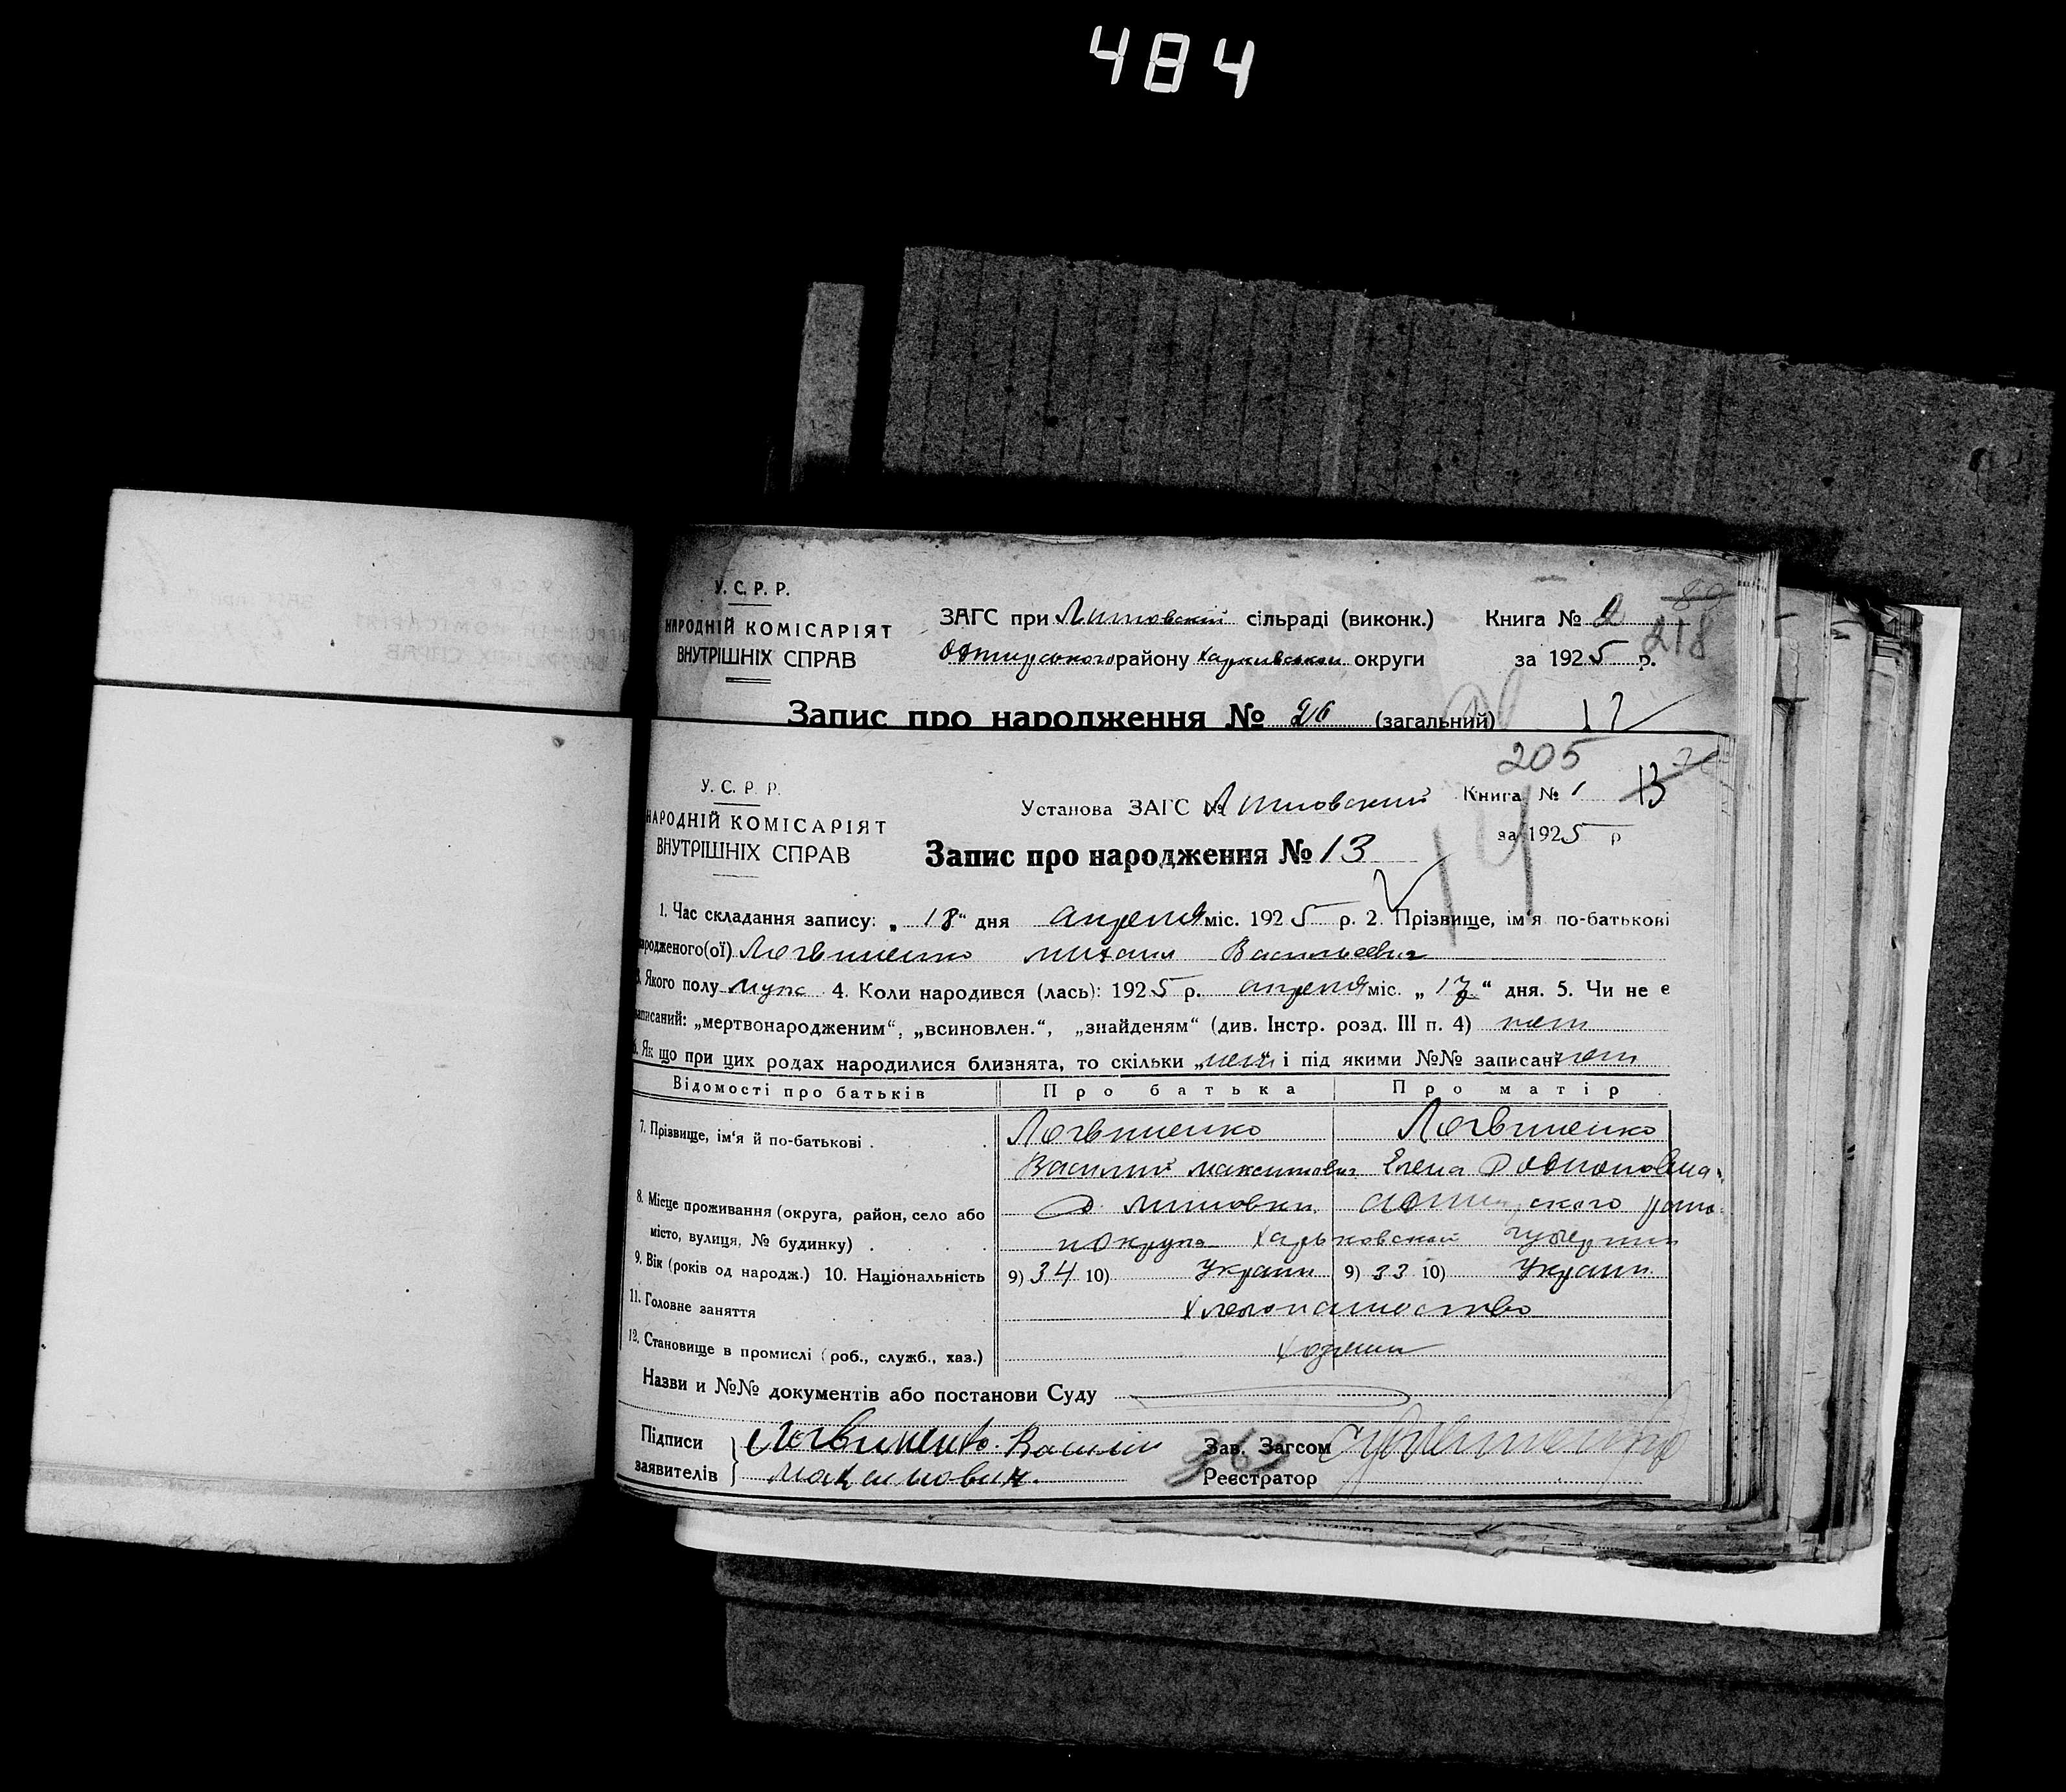 484
У. С. Р. Р.
НАРОДНІЙ КОМІСАРІЯТ
ВНУТРІШНІХ СПРАВ
ЗАГС при Липовский сільраді (виконк.) Книга № 2
району Харкивської округи за 1925 р.
218
Запис про народження № 26 (загальний) 17
205
У. С. Р. Р.
НАРОДНІЙ КОМІСАРІЯТ
ВНУТРІШНІХ СПРАВ
Установа ЗАГС № Липовский Книга № 1 13
за 1925 р
Запис про народження № 13
14
1. Час складання запису: „ 18 “ дня апреля міс. 1925 р. 2. Прізвище, ім'я по-батькові
народженого(ої) Логвиненко Михаил Васильевич
3. Якого полу муж 4. Коли народився (лась): 1925 р. апреля міс. „ 17 “ дня. 5. Чи не є
записаний: „мертвонародженим“, „всиновлен.“, „знайденям“ (див. Інстр. розд. III п. 4) нет
6. Як що при цих родах народилися близнята, то скільки „нет“ і під якими №№ записані нет
Відомості про батьків Про батька Про матір
7. Прізвище, ім'я й по-батькові . . Логвиненко Логвиненко
Василий Максимович Елена Родионовна
8. Місце проживання (округа, район, село або
місто, вулиця, № будинку) . . .
Липовки ского
округа Харьковской губернии
9. Вік (років од народж.) 10. Національність 9) 34 10) Украин 9) 33 10) Украин.
11. Головне заняття хлебопашество
12. Становище в промислі (роб., служб., хаз.) хозяин
Назви и №№ документів або постанови Суду
Підписи заявителів } Логвиненко Василий
Максимович.
Зав. Загсом
Реєстратор
363